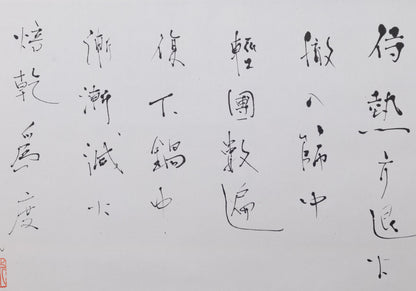 待熱方退火
撤入篩中
輕團數遍
復下鍋中
漸漸減火
焙乾為度